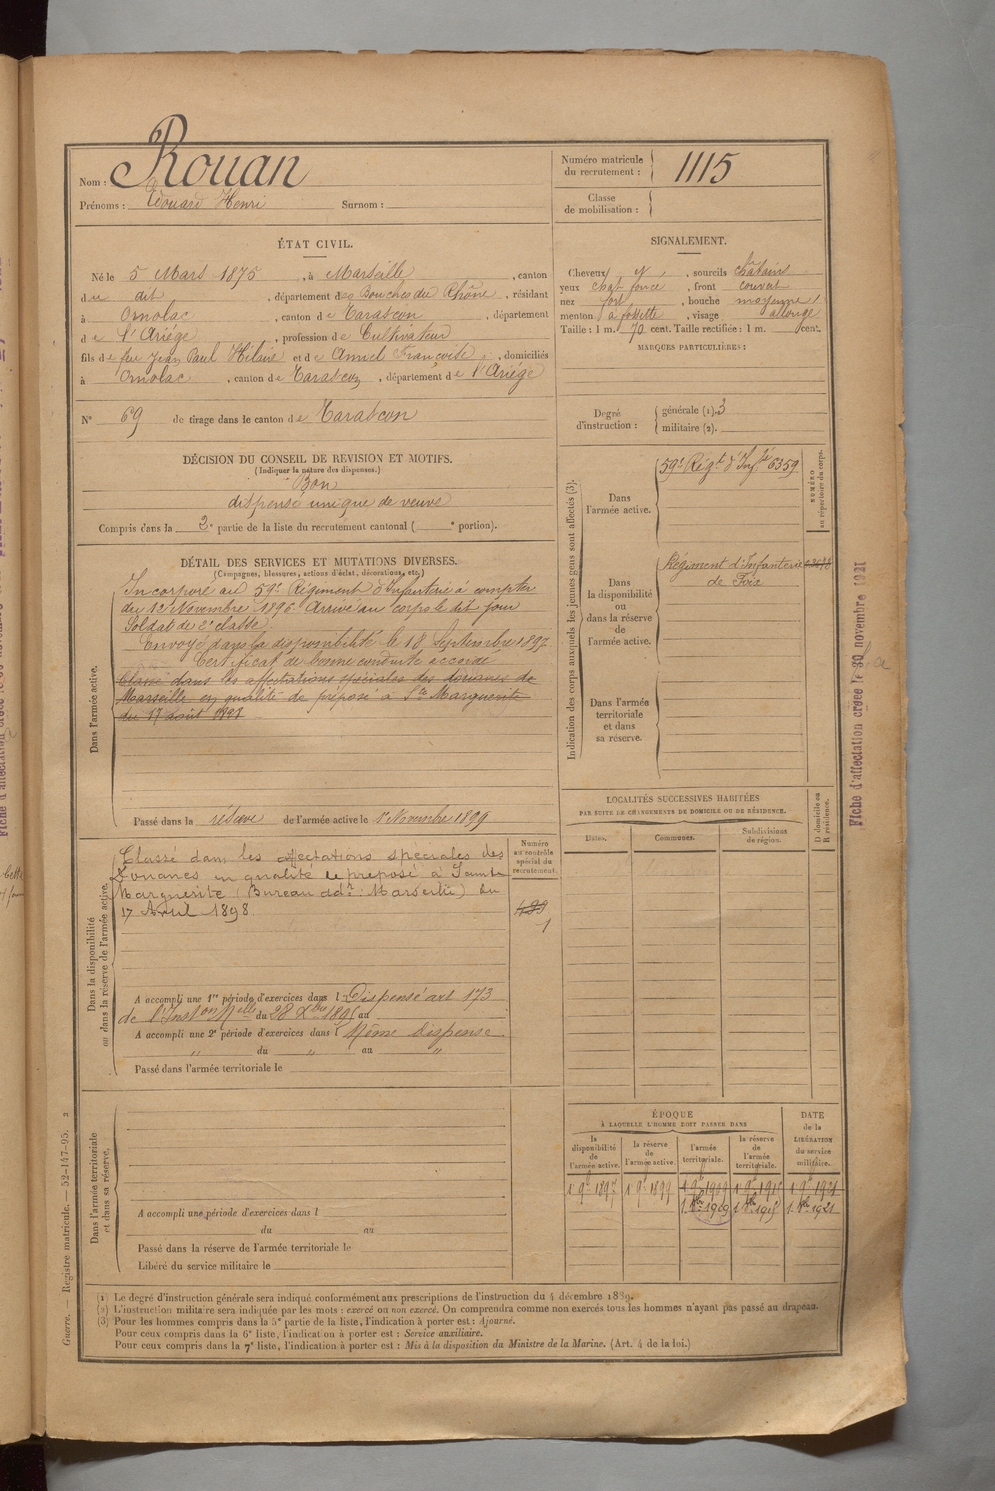 Nom : Rouan
Prénoms : Edouard Henri Surnom :
Numéro matricule du recrutement : 1115
Classe de mobilisation :
ÉTAT CIVIL.
Né le 5 Mars 1875, à Marseille, canton
du dit, département des Bouches du Rhône, résidant
à Ornolac, canton de Tarascon, département
de l'Ariége, profession de Cultivateur
fils de feu Jean Paul Hilaire et de Amiel Françoise, domiciliés
à Ornolac, canton de Tarascon, département de l'Ariége
N° 69 de tirage dans le canton de Tarascon
SIGNALEMENT.
Cheveux et, sourcils châtains
yeux chat foncé, front couvert
nez fort, bouche moyenne
menton à fossette, visage allongé
Taille : 1 m. 70 cent. Taille rectifiée : 1 m. cent.
MARQUES PARTICULIÈRES :
Degré d'instruction : générale (1). 3
militaire (2).
DÉCISION DU CONSEIL DE REVISION ET MOTIFS.
(Indiquer la nature des dispenses.)
Bon
dispensé unique de veuve
Compris dans la 2e partie de la liste du recrutement cantonal ( e portion).
DÉTAIL DES SERVICES ET MUTATIONS DIVERSES.
(Campagnes, blessures, actions d'éclat, décorations, etc.)
Dans l'armée active.
Incorporé au 59e Régiment d'Infanterie à compter
du 12 Novembre 1896 Arrivé au corps le dit jour
Soldat de 2e classe.
Envoyé dans la disponibilité le 18 Septembre 1897
Certificat de bonne conduite accordé
Classé dans les affectations spéciales des douanes de
Marseille en qualité de préposé à Ste Marguerite
du 17 août 1898
Passé dans la réserve de l'armée active le 1er Novembre 1899
Dans la disponibilité
ou dans la réserve de l'armée active.
Numéro au contrôle spécial du recrutement.
Classé dans les affectations spéciales des
Douanes en qualité de préposé à Sainte
Marguerite (Bureau add: Marseille) du
17 Avril 1898
499
1
A accompli une 1re période d'exercices dans l Dispensé art 173
de l'Inston Melle du 28 Xbre 189 au
A accompli une 2e période d'exercices dans l Même dispense
" du " au "
Passé dans l'armée territoriale le
Dans l'armée territoriale
et dans sa réserve.
A accompli une période d'exercices dans l
du au
Passé dans la réserve de l'armée territoriale le
Libéré du service militaire le
Indication des corps auxquels les jeunes gens sont affectés (3).
NUMÉRO au répertoire du corps.
Dans l'armée active.
59e Régt d'Infie 6359
Dans la disponibilité ou dans la réserve de l'armée active.
Régiment d'Infanterie
de Foix
Dans l'armée territoriale et dans sa réserve.
LOCALITÉS SUCCESSIVES HABITÉES
PAR SUITE DE CHANGEMENTS DE DOMICILE OU DE RÉSIDENCE.
Dates. Communes. Subdivisions de région.
D domicile ou R résidence.
ÉPOQUE
À LAQUELLE L'HOMME DOIT PASSER DANS
DATE de la LIBÉRATION du service militaire.
la disponibilité de l'armée active.
la réserve de l'armée active.
l'armée territoriale.
la réserve de l'armée territoriale.
1 9bre 1897 1 9bre 1899 1 9bre 1909 1 9bre 1915 1 9bre 1921
1. 8bre 1909 1. 8bre 1915 1. 8bre 1921
(1) Le degré d'instruction générale sera indiqué conformément aux prescriptions de l'instruction du 4 décembre 1889.
(2) L'instruction militaire sera indiquée par les mots : exercé ou non exercé. On comprendra comme non exercés tous les hommes n'ayant pas passé au drapeau.
(3) Pour les hommes compris dans la 5e partie de la liste, l'indication à porter est : Ajourné.
Pour ceux compris dans la 6e liste, l'indication à porter est : Service auxiliaire.
Pour ceux compris dans la 7e liste, l'indication à porter est : Mis à la disposition du Ministre de la Marine. (Art. 4 de la loi.)
Guerre. — Registre matricule. — 52-147-95. 2
Fiche d'affectation créée le 30 novembre 1921